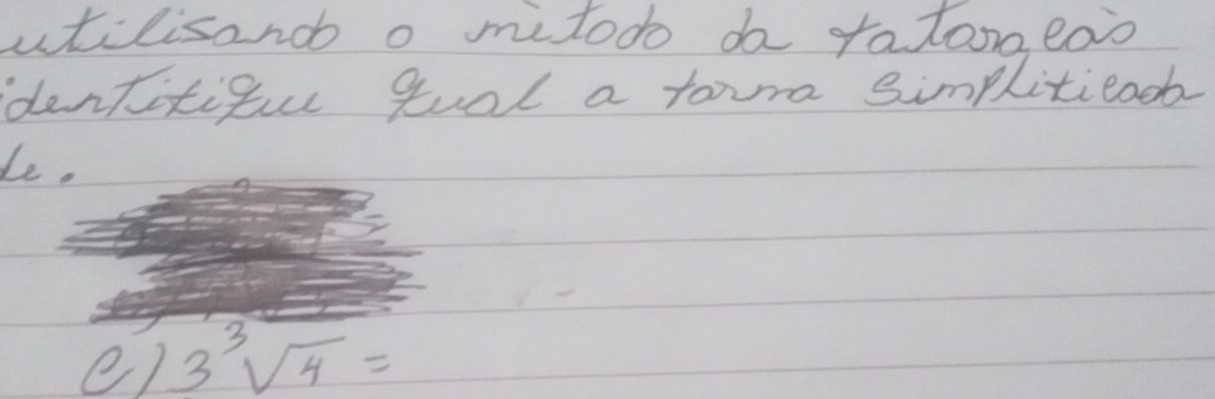 utilisando o método da fatoração
identifique qual a forma simplificada
de.
e) 3³√4 =